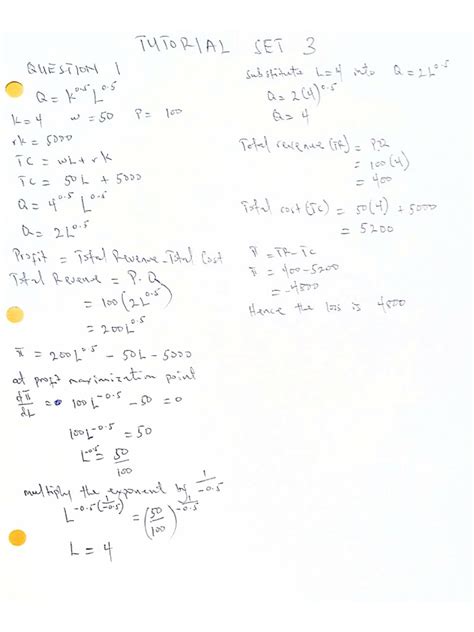 TUTORIAL SET 3
QUESTION 1
Q = K^0.5 L^0.5
K = 4 w = 50 P = 100
rK = 5000
TC = wL + rK
TC = 50L + 5000
Q = 4^0.5 L^0.5
Q = 2L^0.5
Profit = Total Revenue - Total Cost
Total Revenue = P.Q
= 100(2L^0.5)
= 200L^0.5
π = 200L^0.5 - 50L - 5000
at profit maximization point
dπ/dL = 0 100L^-0.5 - 50 = 0
100L^-0.5 = 50
L^-0.5 = 50/100
multiply the exponent by 1/-0.5
L^-0.5(1/-0.5) = (50/100)^1/-0.5
L = 4
Substitute L=4 into Q = 2L^0.5
Q = 2(4)^0.5
Q = 4
Total revenue (TR) = P.Q
= 100(4)
= 400
Total cost (TC) = 50(4) + 5000
= 5200
π = TR - TC
π = 400 - 5200
= -4800
Hence the loss is 4800